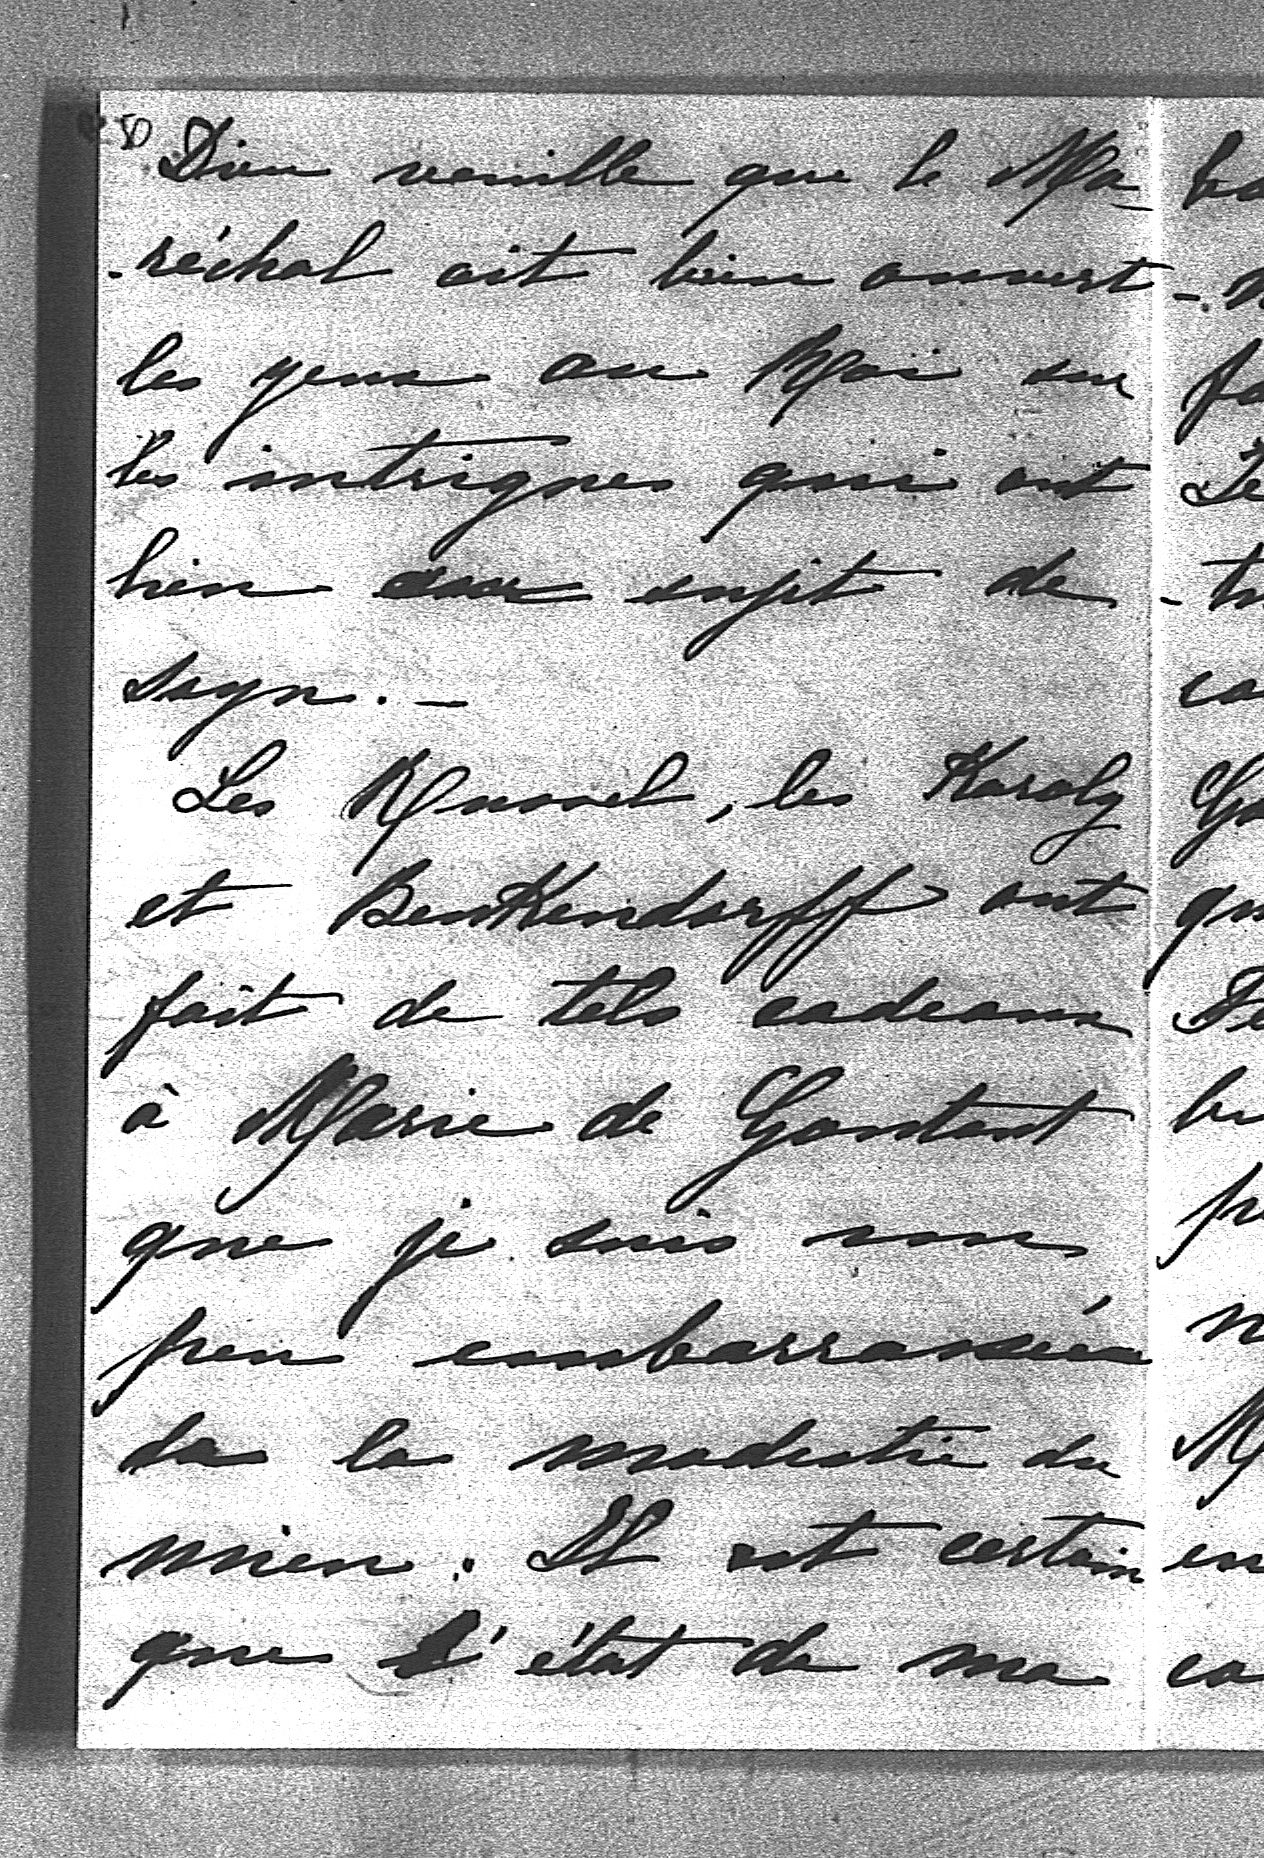 80
Dieu veuille que le Ma-
-réchal ait bien ouvert
les yeux au Roi sur
les intrigues qui ont
lieu au sujet de
Sayn. —
Les Russel, les Karoly
et Benkendorff ont
fait de tels cadeaux
à Marie de Gontaut
que je suis un
peu embarrassée
de la modestie du
mien. Il est certain
que l'état de ma